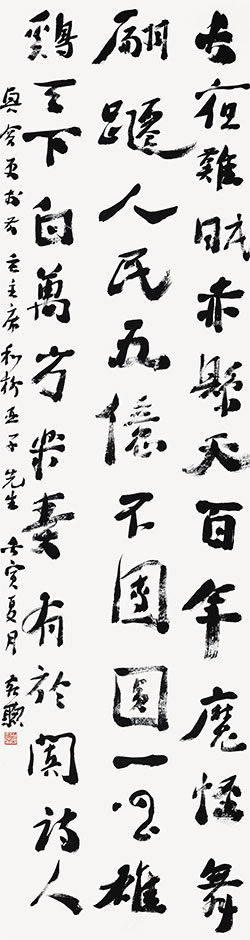 長夜難明赤縣天百年魔怪舞
翩躚人民五億不團圓一唱雄
鷄天下白萬方樂奏有於闐詩人
興會更無前 毛主席和柳亞子先生 壬寅夏月